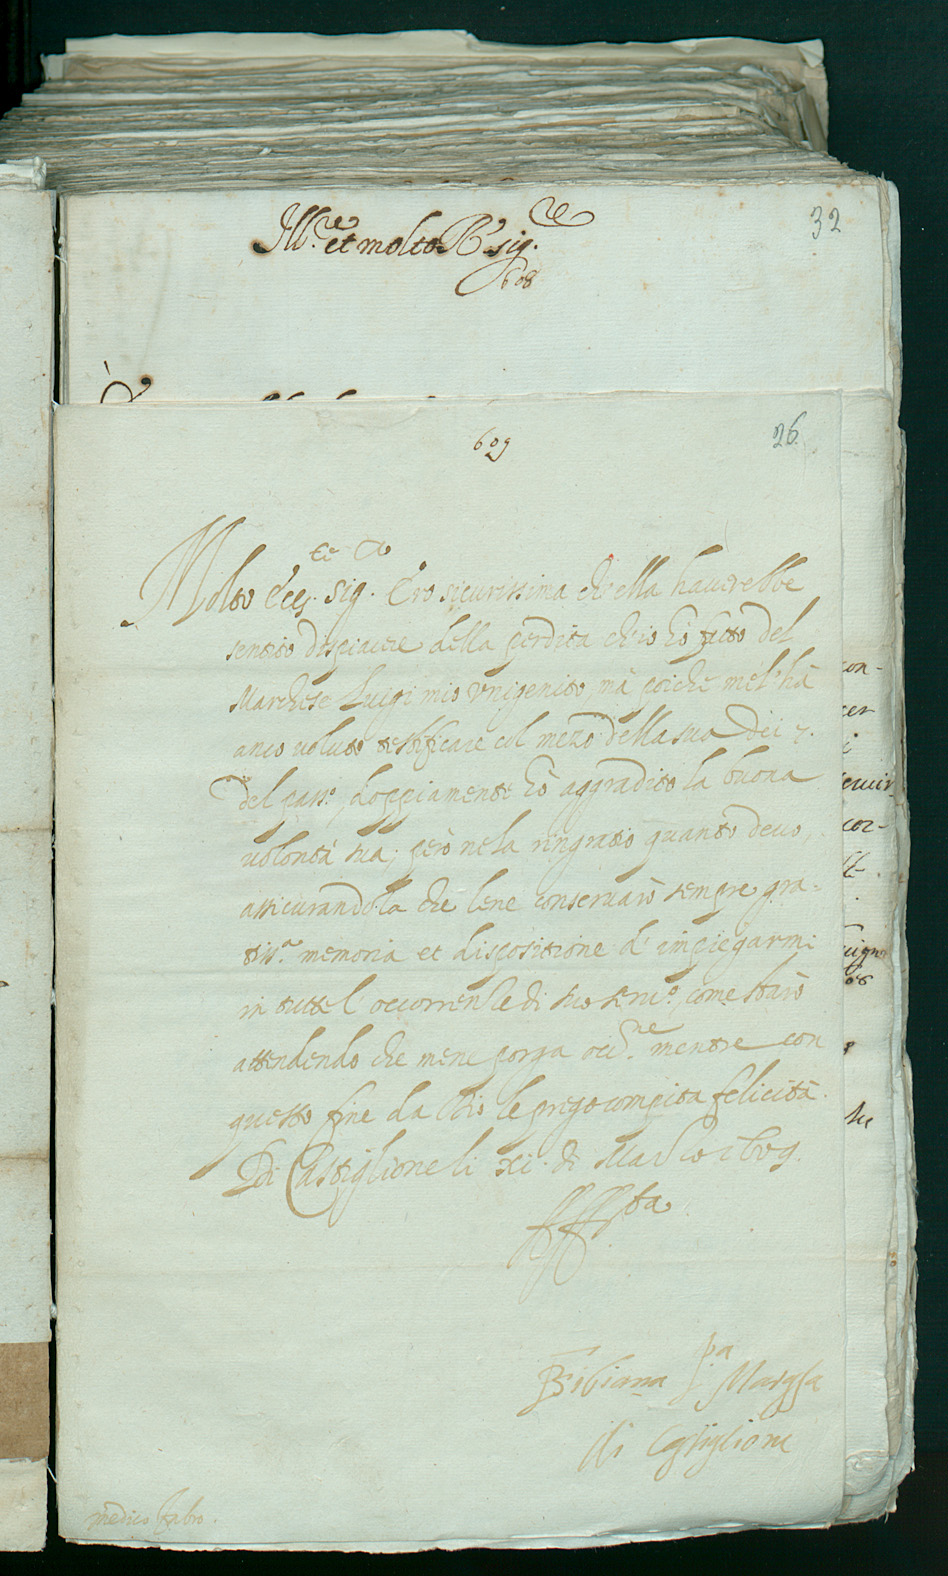 32
Ill.re et molto R.do sig.re
608
609
26.
Molto Ecc.te Sig.re Ero sicurissima ch'ella haverebbe
sentito dispiacere della perdita ch'io hò fatto del
Marchese Luigi mio Vnigenito, mà poiche mel'hà
anco voluto testificare col mezo della sua Dei 7.
del pass.o, doppiamente hò aggradito la buona
volontà sua; però nela ringratio quanto devo,
assicurandola che lene conservarò sempre gra=
tiss.a memoria et dispositione d' impiegarmi
in tutte l' occorrenze di suo serv.o, come starò
attendendo che mene porga occ.ne mentre con
questo fine da Dio le prego compita felicità.
Di Castiglione li xi. di
Bibiana
Marchsa
di Castiglione
medico fabro.
con-
cer
i
cor-